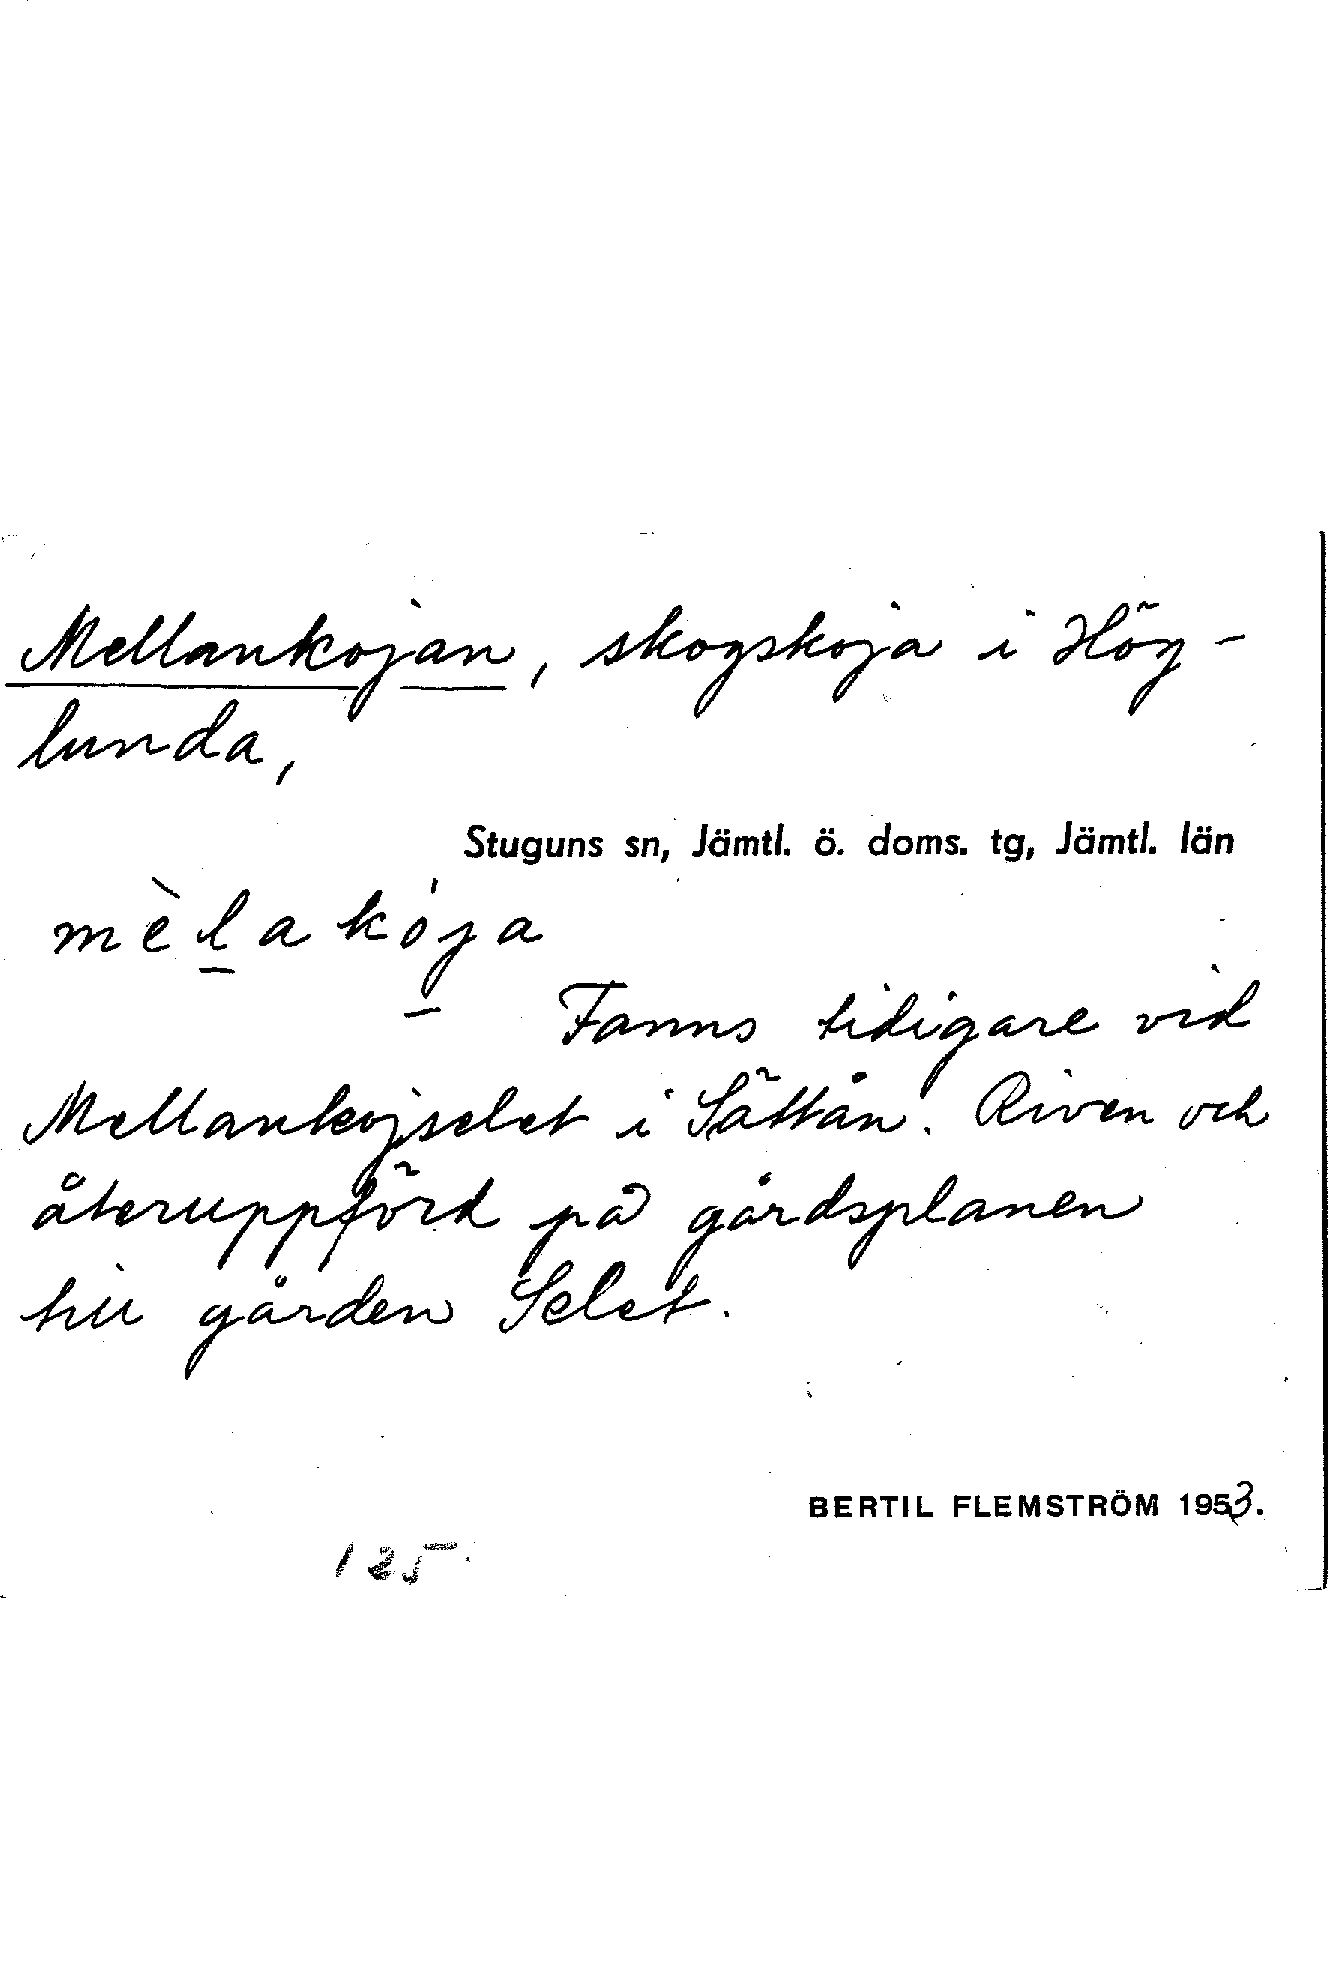 Mellankojan, skogskoja i Hög-
lunda,
Stuguns sn, Jämtl. ö. doms. tg, Jämtl. län
mèl̲akój̲a
Fanns tidigare vid
Mellankojselet i Sättån. Riven och
återuppförd på gårdsplanen
till gården Selet.
BERTIL FLEMSTRÖM 1953.
125